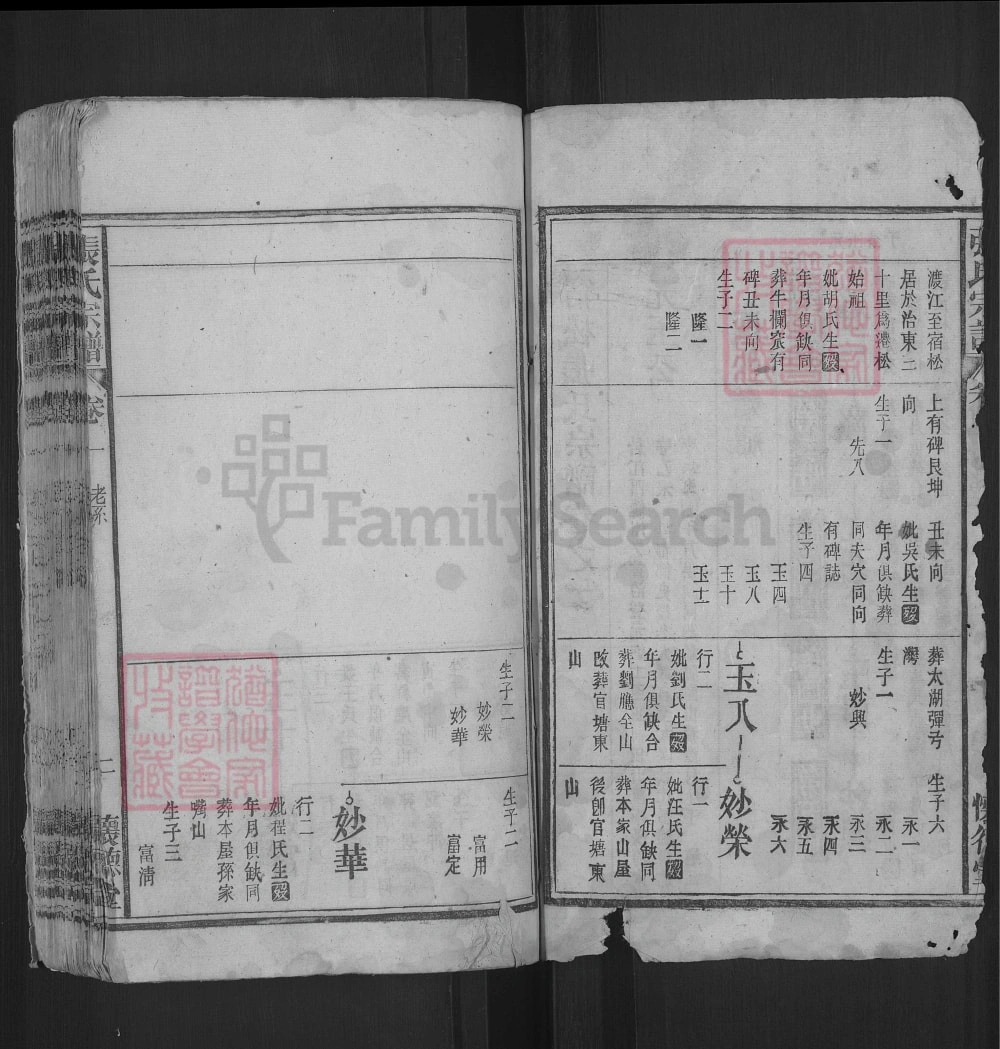 渡江至宿松
居於治東二
十里為遷松
始祖
妣胡氏生歿
年月俱缺同
葬牛欄窊有
碑丑未向
生子二
隆一
隆二
上有碑艮坤
向
生子一
先八
丑未向
妣吳氏生歿
年月俱缺葬
同夫穴同向
有碑誌
生子四
玉四
玉八
玉十
玉士
葬太湖彈兮
灣
生子一
妙興
玉八
行二
妣劉氏生歿
年月俱缺合
葬劉應仝山
改葬官塘東
山
生子六
永一
永二
永三
永四
永五
永六
妙榮
行一
妣汪氏生歿
年月俱缺同
葬本家山屋
後卽官塘東
山
生子二
妙榮
妙華
生子二
富用
富定
妙華
行二
妣程氏生歿
年月俱缺同
葬本屋孫家
嘴山
生子三
富清
張氏宗譜
卷一
老系
二
懷德堂
FamilySearch